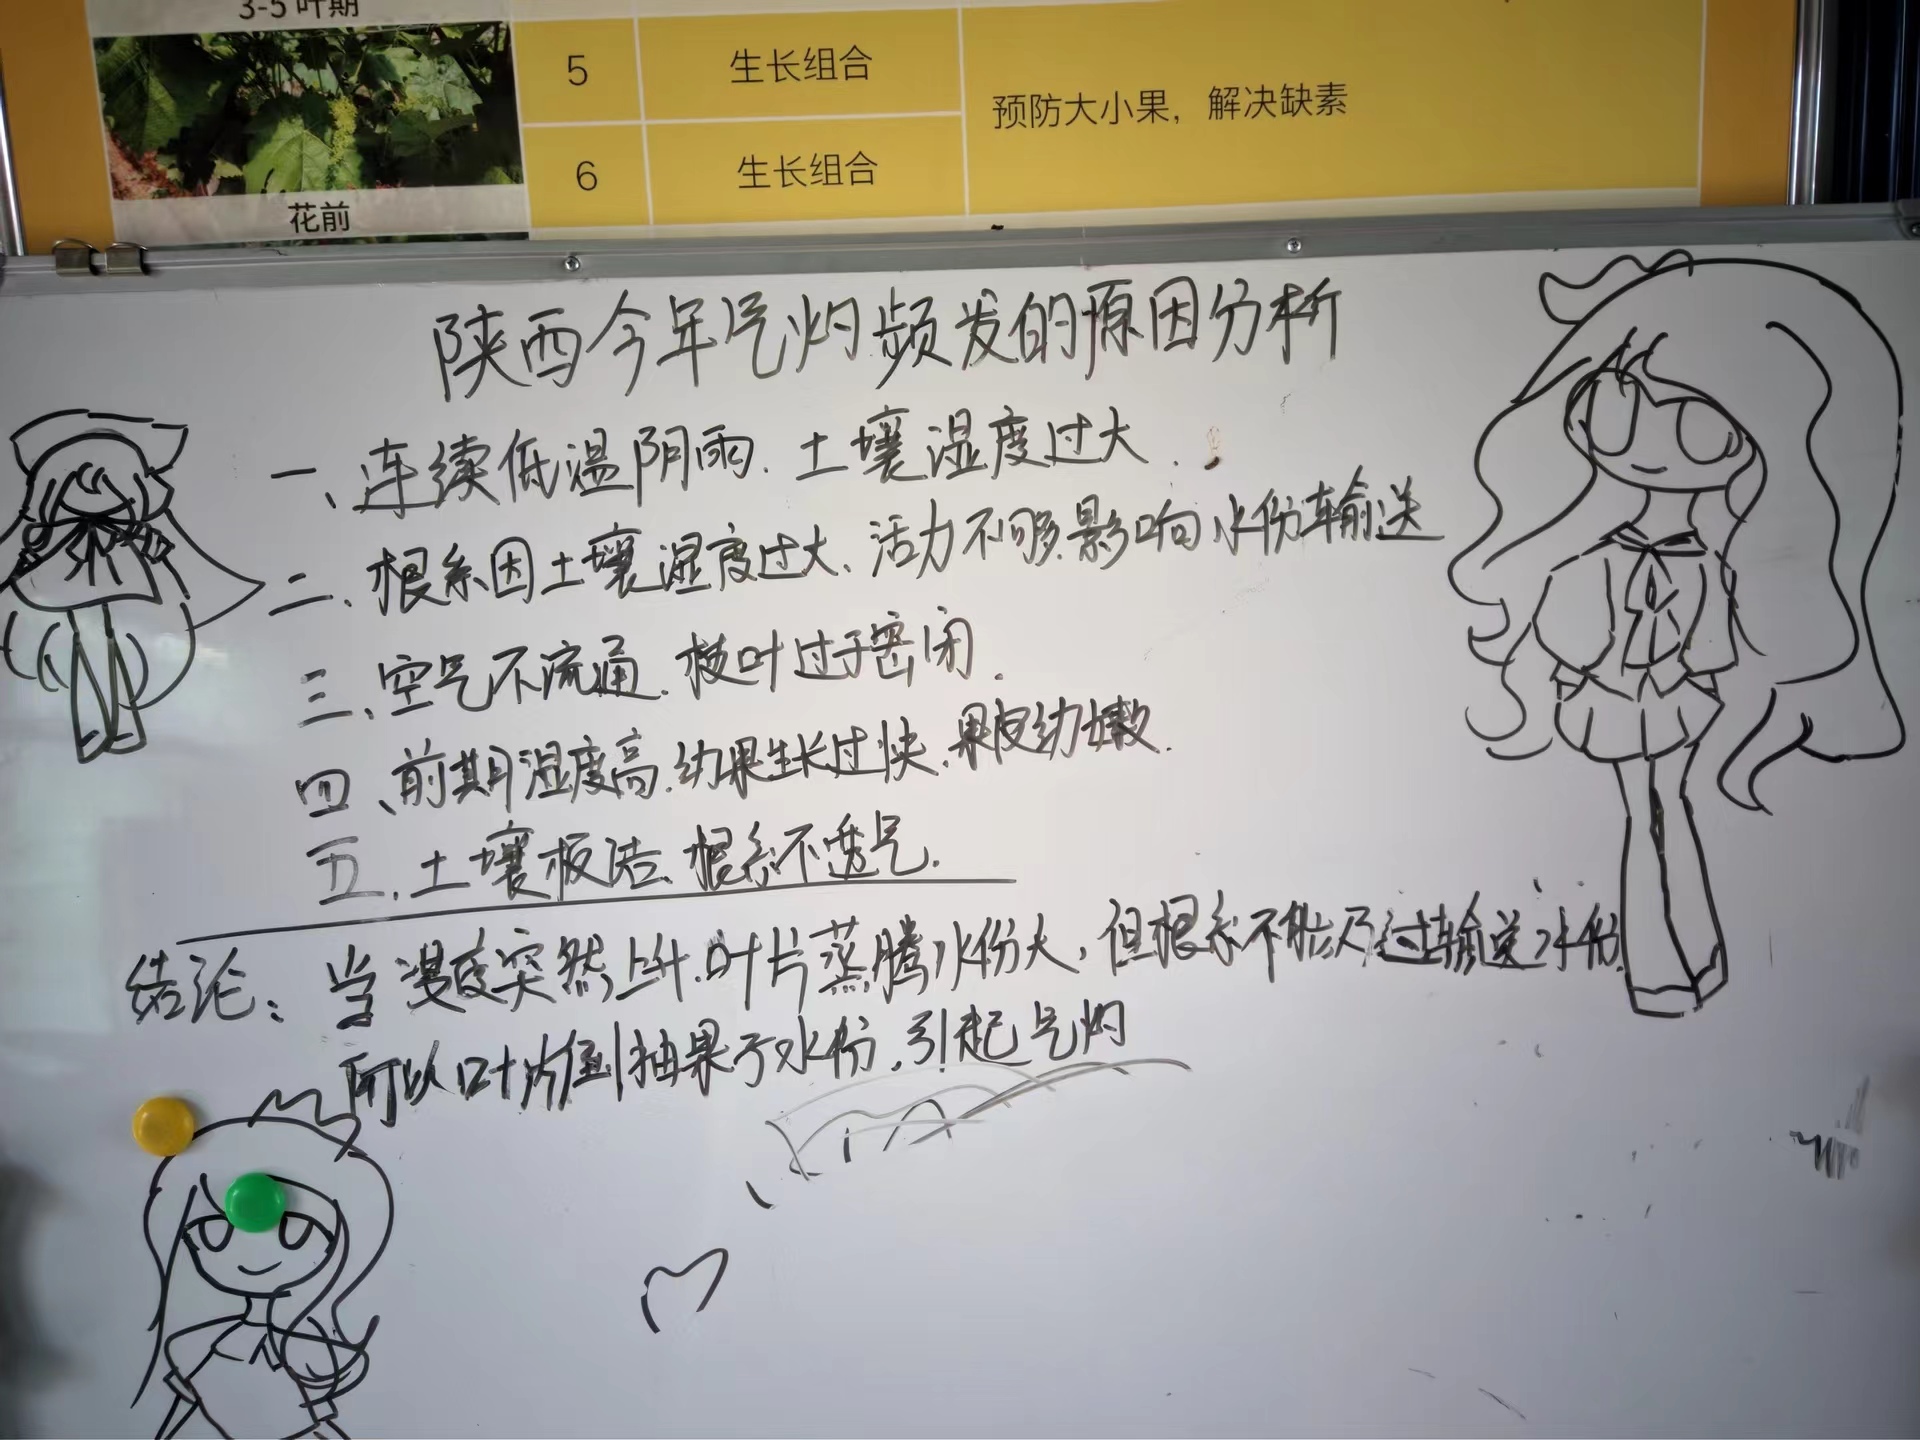 3-5 叶期
5 生长组合
预防大小果，解决缺素
6 生长组合
花前
陕西今年气灼频发的原因分析
一、连续低温阴雨．土壤湿度过大．
二、根系因土壤湿度过大、活力不够.影响水份输送
三、空气不流通．枝叶过于密闭．
四、前期湿度高.幼果生长过快.果皮幼嫩．
五．土壤板结．根系不透气．
结论：当温度突然上升.叶片蒸腾水份大，但根系不能及过输送水份．
所以叶片倒抽果子水份．引起气灼